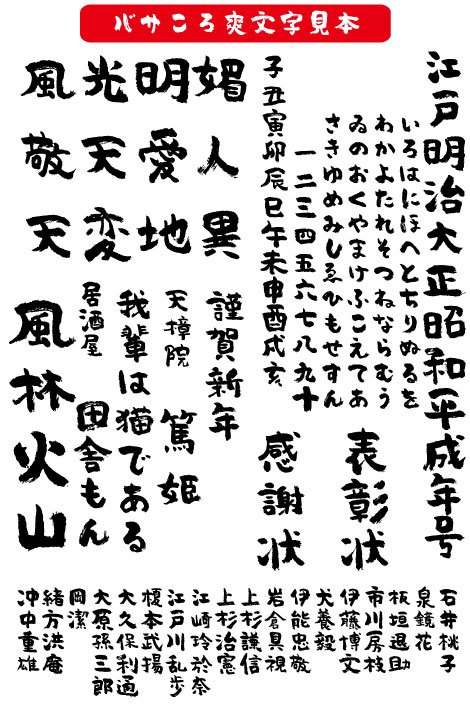 バサころ爽文字見本
江戸明治大正昭和平成年号
いろはにほへとちりぬるを
わかよたれそつねならむう
ゐのおくやまけふこえてあ
さきゆめみしゑひもせすん
一二三四五六七八九十
子丑寅卯辰巳午未申酉戌亥
表彰状
感謝状
風光明媚
敬天愛人
天変地異
謹賀新年
天樟院 篤姫
我輩は猫である
居酒屋 田舎もん
風林火山
石井桃子
泉鏡花
板垣退助
市川房枝
伊藤博文
犬養毅
伊能忠敬
岩倉具視
上杉謙信
上杉治憲
江崎玲於奈
江戸川乱歩
榎本武揚
大久保利通
大原孫三郎
岡潔
緒方洪庵
沖中重雄